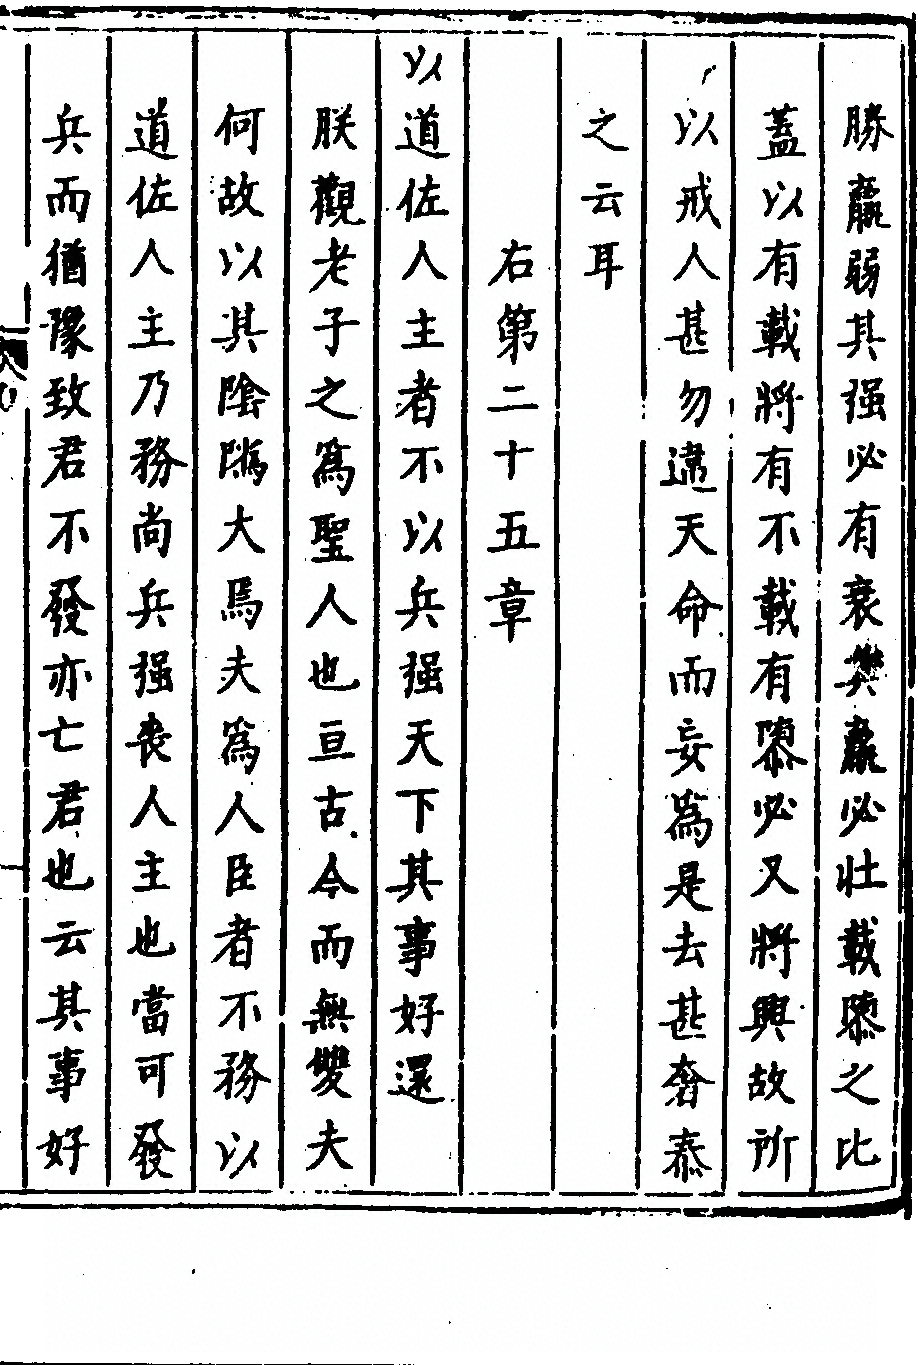 勝羸弱其强必有衰與羸必壯載隳之比
蓋以有載將有不載有隳必又將興故所
以戒人甚勿違天命而妄為是去甚奢泰
之云耳
右第二十五章
以道佐人主者不以兵强天下其事好還
朕觀老子之為聖人也亘古今而無雙夫
何故以其陰隲大焉夫為人臣者不務以
道佐人主乃務尚兵强喪人主也當可發
兵而猶豫致君不發亦亡君也云其事好